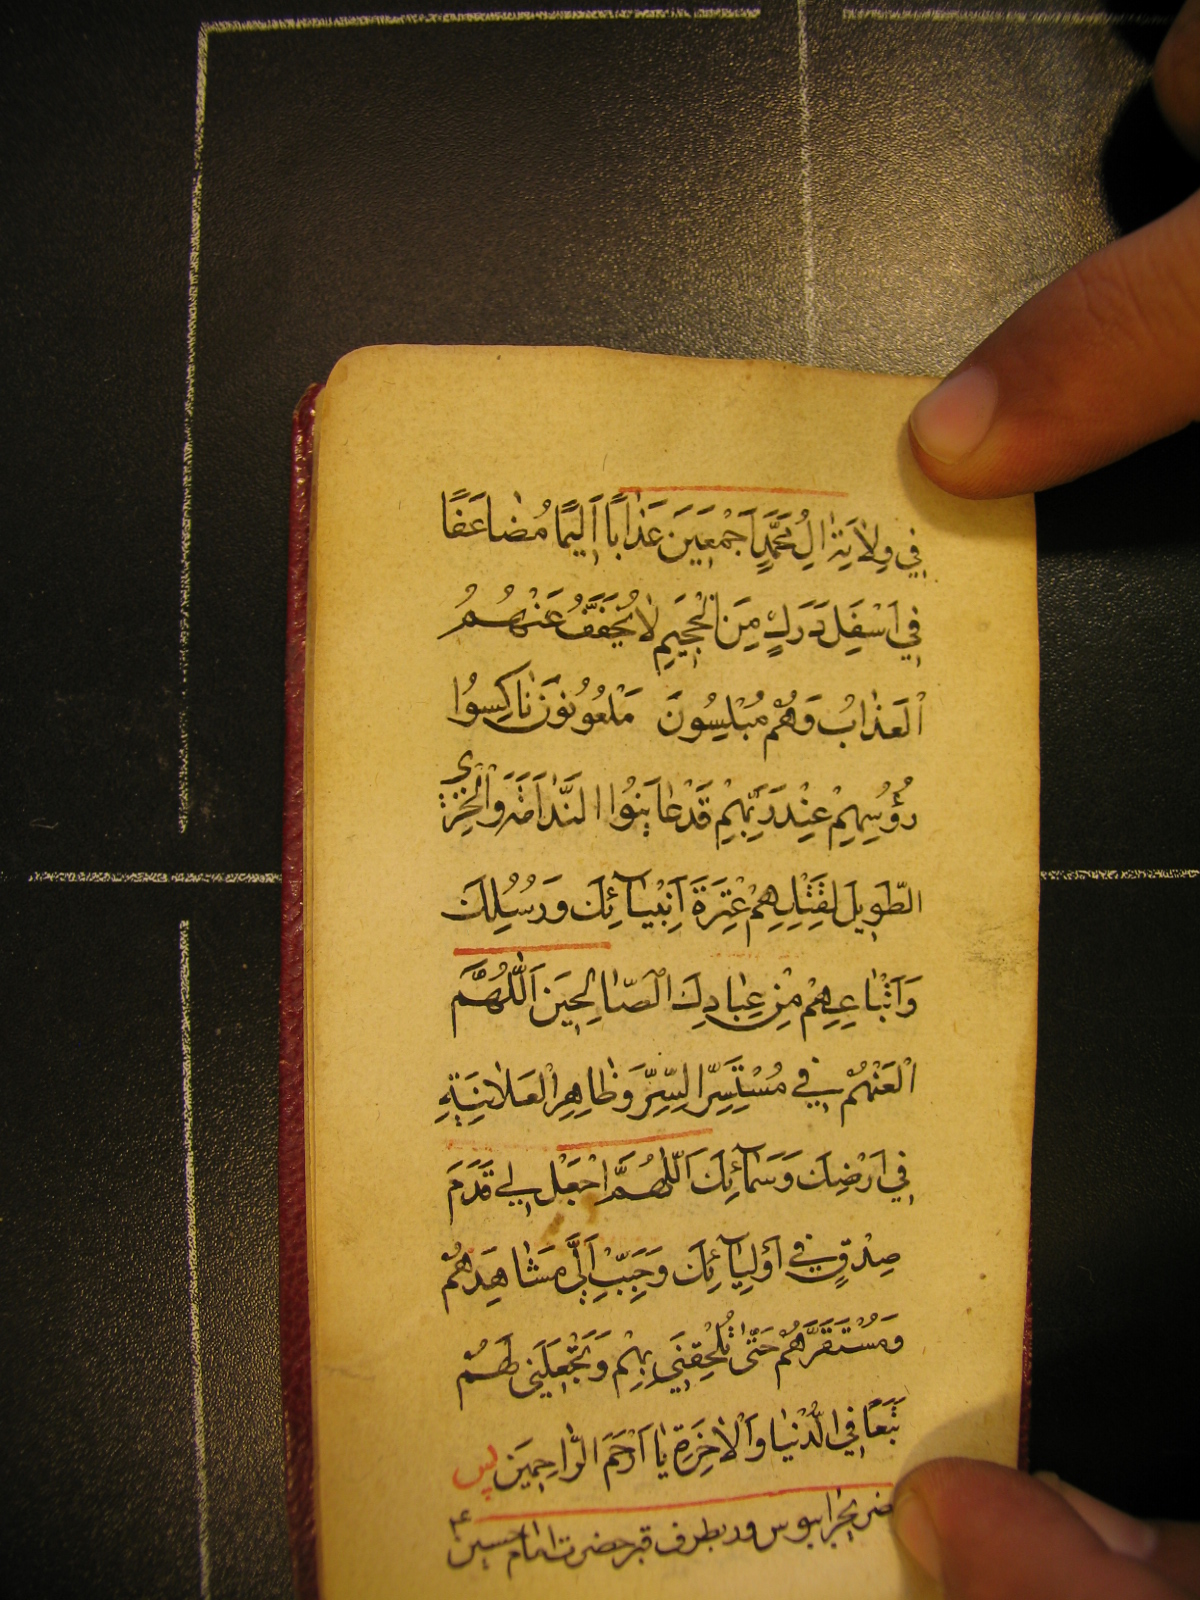 في وِلايَةِ الِ مُحَمَّدٍ اَجْمَعينَ عَذابًا اَليمًا مُضاعَفًا
في اَسْفَلِ دَرَكٍ مِنَ الْجَحيمِ لا يُخَفَّفُ عَنْهُمُ
الْعَذابُ وَهُمْ مُبْلِسُونَ مَلْعُونُونَ ناكِسُوا
رُؤُسِهِمْ عِنْدَ رَبِّهِمْ قَدْ عايَنُوا النَّدامَةَ وَالْخِزْيَ
الطَّويلَ لِقَتْلِهِمْ عِتْرَةَ اَنْبِيآئِكَ وَرُسُلِكَ
وَاَتْباعِهِمْ مِنْ عِبادِكَ الصّالِحينَ اَللّهُمَّ
الْعَنْهُمْ في مُسْتَسِرِّ السِّرِّ وَظاهِرِ الْعَلانِيَةِ
في اَرْضِكَ وَسَمآئِكَ اَللّهُمَّ اجْعَلْ لي قَدَمَ
صِدْقٍ في اَوْلِيآئِكَ وَحَبِّبْ اِلَيَّ مَشاهِدَهُمْ
وَمُسْتَقَرَّهُمْ حَتّى تُلْحِقَني بِهِمْ وَتَجْعَلَني لَهُمْ
تَبَعًا في الدُّنْيا وَالْاخِرَةِ يا اَرْحَمَ الرّاحِمينَ پس
ببوس ورو بطرف قبر حضرت امام حسين ع